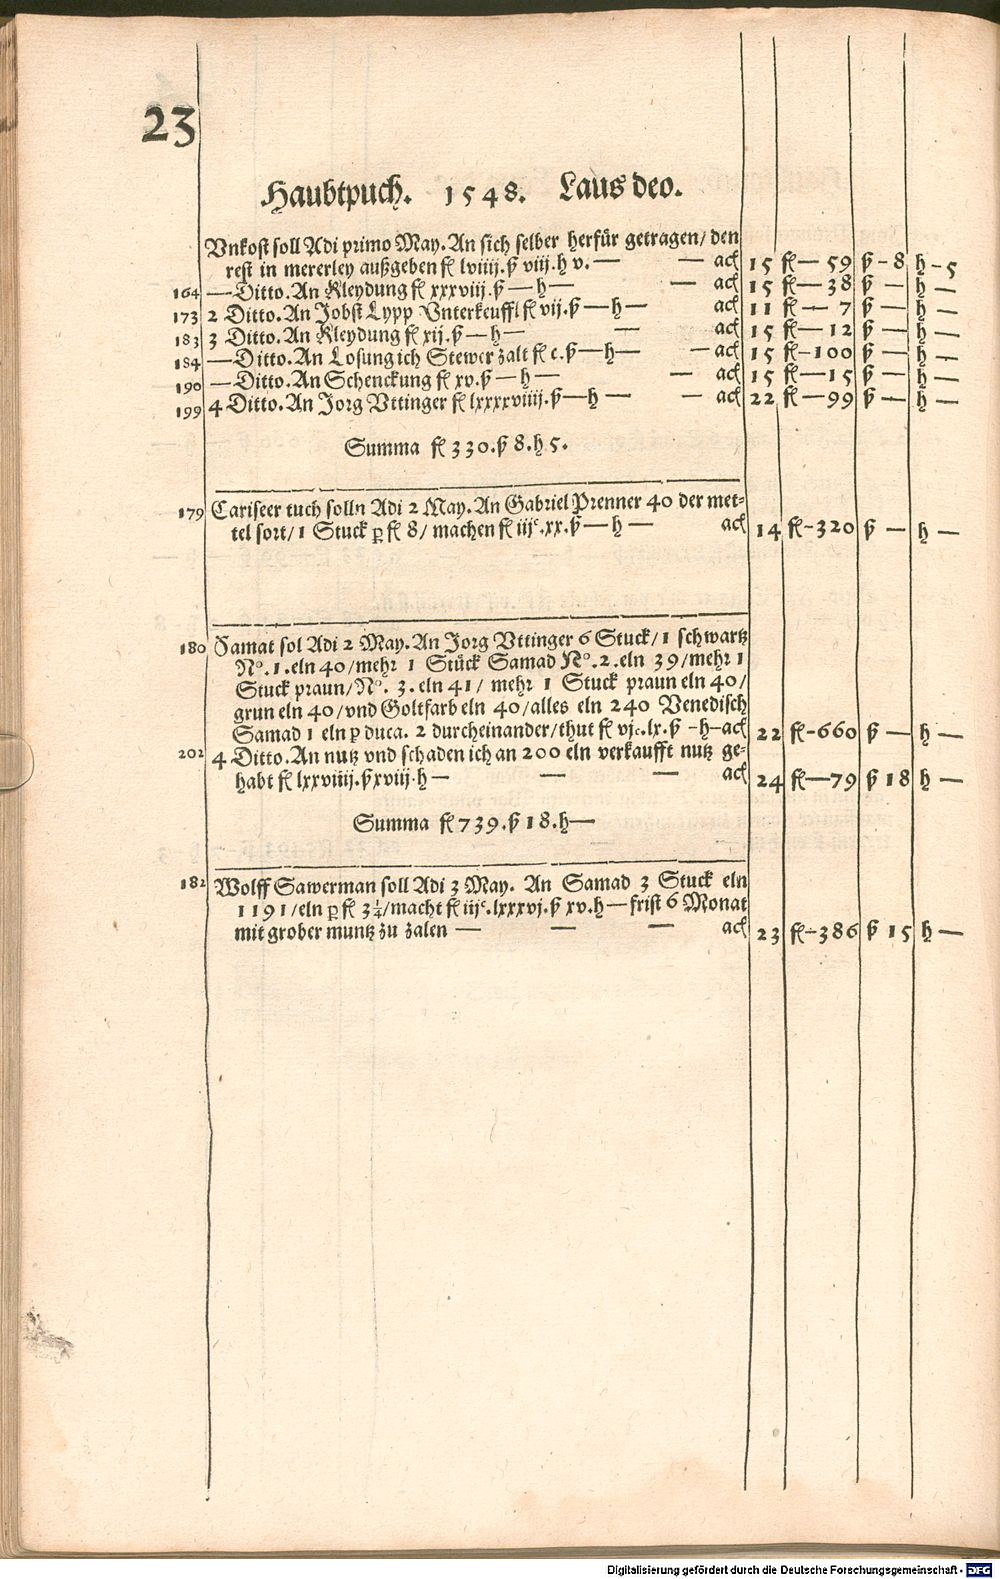 23
Haubtpuch. 1548. Laus deo.
Vnkost soll Adi primo May. An sich selber herfür getragen/ den
rest in mererley außgeben fl lviiij. ß viij. h v. — — ack 15 fl — 59 ß - 8 h - 5
164 — Ditto. An Kleydung fl xxxviij. ß — h — — ack 15 fl — 38 ß — h —
173 2 Ditto. An Jobst Lypp Vnterkeuffl fl vij. ß — h — ack 11 fl — 7 ß — h —
183 3 Ditto. An Kleydung fl xij. ß — h — — ack 15 fl — 12 ß — h —
184 — Ditto. An Losung ich Stewer zalt fl c. ß — h — — ack 15 fl - 100 ß — h —
190 — Ditto. An Schenckung fl xv. ß — h — — ack 15 fl — 15 ß — h —
199 4 Ditto. An Jorg Vttinger fl lxxxxviiij. ß — h — — ack 22 fl — 99 ß — h —
Summa fl 330. ß 8. h 5.
179 Cariseer tuch solln Adi 2 May. An Gabriel Prenner 40 der met-
tel sort/ 1 Stuck p fl 8/ machen fl iijc. xx. ß — h — ack 14 fl - 320 ß — h —
180 Samat sol Adi 2 May. An Jorg Vttinger 6 Stuck/ 1 schwartz
No. 1. eln 40/ mehr 1 Stück Samad No. 2. eln 39/ mehr 1
Stuck praun/ No. 3. eln 41/ mehr 1 Stuck praun eln 40/
grun eln 40/ vnd Goltfarb eln 40/ alles eln 240 Venedisch
Samad 1 eln p duca. 2 durcheinander/ thut fl vjc. lx. ß - h — ack 22 fl - 660 ß — h —
202 4 Ditto. An nutz vnd schaden ich an 200 eln verkaufft nutz ge-
habt fl lxxviiij. ß xviij. h — — — ack 24 fl — 79 ß 18 h —
Summa fl 739. ß 18. h —
182 Wolff Sawerman soll Adi 3 May. An Samad 3 Stuck eln
119 1/ eln p fl 3 1/4/ macht fl iijc. lxxxvj. ß xv. h — frist 6 Monat
mit grober muntz zu zalen — — — ack 23 fl - 386 ß 15 h —
Digitalisierung gefördert durch die Deutsche Forschungsgemeinschaft - DFG